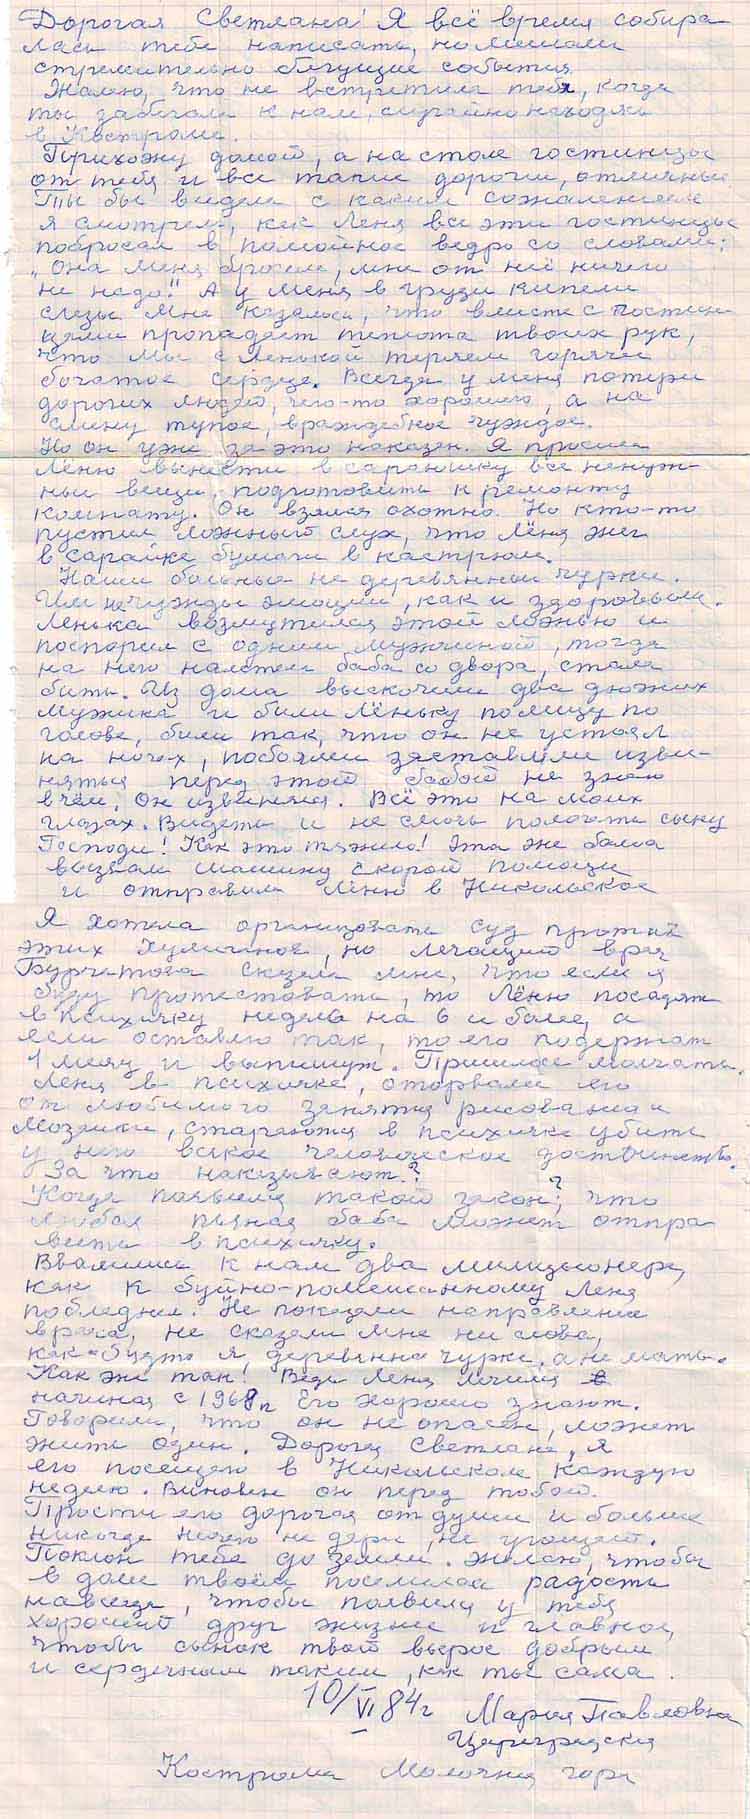 Дорогая Светлана! Я всё время собира
лась тебе написать, но мешали
стремительно бегущие события.
Жалею, что не встретила тебя, когда
ты забегала к нам, случайно находясь
в Костроме.
Прихожу домой, а на столе гостинцы
от тебя и все такие дорогие, отличные
Ты бы видела с каким сожалением
я смотрела, как Лёня все эти гостинцы
побросал в помойное ведро со словами:
"Она меня бросила, мне от неё ничего
не надо!" А у меня в груди кипели
слёзы. Мне казалось, что вместе с гостин
цами пропадает теплота твоих рук,
что мы с Лёнькой теряем горячее
богатое сердце. Всегда у меня потери
дорогих людей, чего-то хорошего, а на
смену тупое, враждебное чуждое.
Но он уже за это наказан. Я просила
Лёню вынести в сараюшку все ненуж-
ные вещи, подготовить к ремонту
комнату. Он взялся охотно. Но кто-то
пустил ложный слух, что Лёня жег
в сарайке бумаги в кастрюле.
Наши больные не деревянные чурки.
Им не чужды эмоции, как и здоровым.
Лёнька возмутился этой ложью и
поспорил с одним мужчиной, тогда
на него налетела баба со двора, стала
бить. Из дома выскочили два дюжих
мужика и били Лёньку по лицу по
голове, били так, что он не устоял
на ногах, побоями заставляли изви-
няться перед этой бабой не знаю
в чём. Он извинялся. Всё это на моих
глазах. Видеть и не смочь помочь сыну
Господи! Как это тяжело! Эта же баба
вызвала машину скорой помощи
и отправила Лёню в Никольское
Я хотела организовать суд против
этих хулиганов, но лечащий врач
сказала мне, что если я
буду протестовать, то Лёню посадят
в психичку недель на 6 и более, а
если оставлю так, то его подержат
1 месяц и выпишут. Пришлось молчать.
Лёня в психичке, оторвали его
от любимого занятия рисования и
мозаики, стараются в психичке убить
у него всякое человеческое достоинство.
За что наказывают?
Когда появился такой закон, что?
любая пьяная баба может отпра
вить в психичку.
Ввалились к нам два милиционера,
как к буйно-помешанному Лёня
побледнел. Не показали направление
врача, не сказали мне ни слова,
как будто я деревянная чурка, а не мать.
Как же так! Ведь Лёня лечился
начиная с 1968 г. Его хорошо знают.
Говорили, что он не опасен, может
жить один. Дорогая Светлана, я
его посещаю в Никольском каждую
неделю. Виновен он перед тобой.
Прости его дорогая от души и больше
никогда ничего не дари, не угощай.
Поклон тебе до земли. Желаю, чтобы
в доме твоём поселилась радость
навсегда, чтобы появился у тебя
хороший друг жизни и главное,
чтобы сынок твой вырос добрым
и сердечным таким, как ты сама.
10/VI 84 г Мария Павловна
Цареградская
Кострома Молочная гора